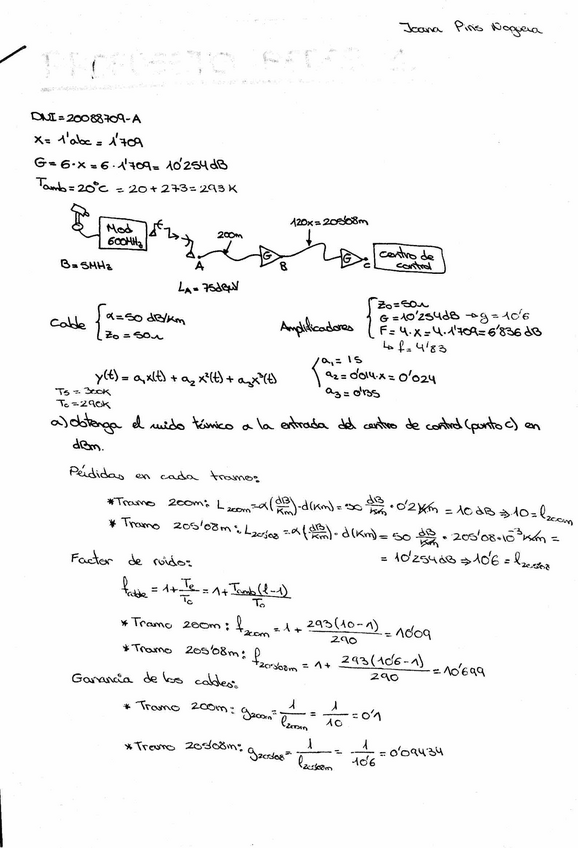 Joana Piris Noguera
DNI = 20088709-A
X = 1'abc = 1'709
G = 6·x = 6·1'709 = 10'254 dB
Tamb = 20°C = 20 + 273 = 293 K
Mod 600MHz
200m
120x = 205'08m
G
B
G
C
centro de control
A
B = 5MHz
LA = 75dBμV
Cable { α = 50 dB/Km
Z0 = 50Ω
Amplificadores { Z0 = 50Ω
G = 10'254dB → g = 10'6
F = 4·X = 4·1'709 = 6'836 dB
↳ f = 4'83
y(t) = a₁x(t) + a₂x²(t) + a₃x³(t)
{ a₁ = 15
a₂ = 0'014·x = 0'024
a₃ = 0'135
Ts = 300K
To = 290K
a) obtenga el ruido térmico a la entrada del centro de control (punto C) en
dBm.
Pérdidas en cada tramo:
* Tramo 200m: L200m = α(dB/Km)·d(Km) = 50 dB/Km · 0'2 Km = 10 dB ⇒ 10 = l200m
* Tramo 205'08m: L205'08 = α(dB/Km)·d(Km) = 50 dB/Km · 205'08·10⁻³ Km =
= 10'254dB ⇒ 10'6 = l205'08
Factor de ruido:
fcable = 1 + Te/To = 1 + Tamb(l-1)/To
* Tramo 200m: f200m = 1 + 293(10-1)/290 = 10'09
* Tramo 205'08m: f205'08m = 1 + 293(10'6-1)/290 = 10'699
Ganancia de los cables:
* Tramo 200m: g200m = 1/l200m = 1/10 = 0'1
* Tramo 205'08m: g205'08 = 1/l205'08m = 1/10'6 = 0'09434